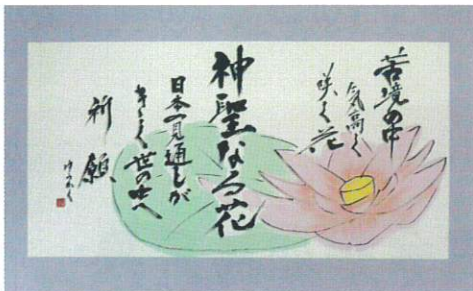 苦境の中
気高く
咲く花
神聖なる花
日本一見通しが
きく世の中へ
祈願